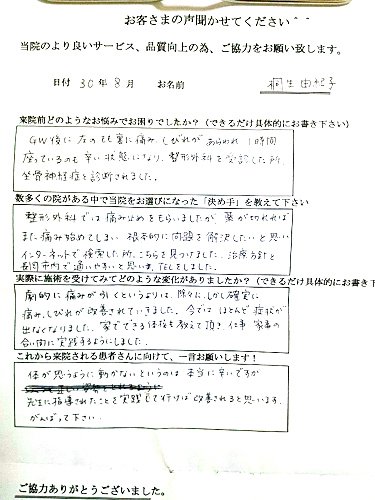 お客さまの声聞かせてください＾＾
当院のより良いサービス、品質向上の為、ご協力をお願い致します。
日付 30年8月 お名前 桐生由紀子
来院前どのようなお悩みでお困りでしたか？（できるだけ具体的にお書き下さい）
GW後に左のもも裏に痛み、しびれがあらわれ1時間
座っているのも辛い状態になり、整形外科を受診した所、
坐骨神経症と診断されました。
数多くの院がある中で当院をお選びになった「決め手」を教えて下さい
整形外科では痛み止めをもらいましたが 薬が切れれば
また痛み始めてしまい 根本的に問題を解決したいと思い
インターネットで検索した所、こちらを見つけました。治療方針と
長岡市内で通いやすいと思いTELをしました。
実際に施術を受けてみてどのような変化がありましたか？（できるだけ具体的にお書き下
劇的に痛みが引くというよりは、除々に、しかし確実に
痛み、しびれが改善されていきました。今ではほとんど症状が
出なくなりました。家でできる体操も教えて頂き、仕事 家事の
合い間に実践するようにしました。
これから来院される患者さんに向けて、一言お願いします！
体が思うように動かないというのは 本当に辛いですが
先生に指導されたことを実践して行けば改善されると思います。
がんばって下さい。
ご協力ありがとうございました。